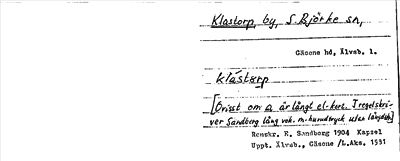 Klastorp, by, S. Björke sn,
Gäsene hd, Älvsb. l.
klástárp
[Ovisst om a är långt el. kort. I regel skri-
ver Sandberg lång vok. m. huvudtryck utan längdstr.]
Renskr. E. Sandberg 1904 Kapsel
Uppt. Älvsb., Gäsene /L.Aks. 1931